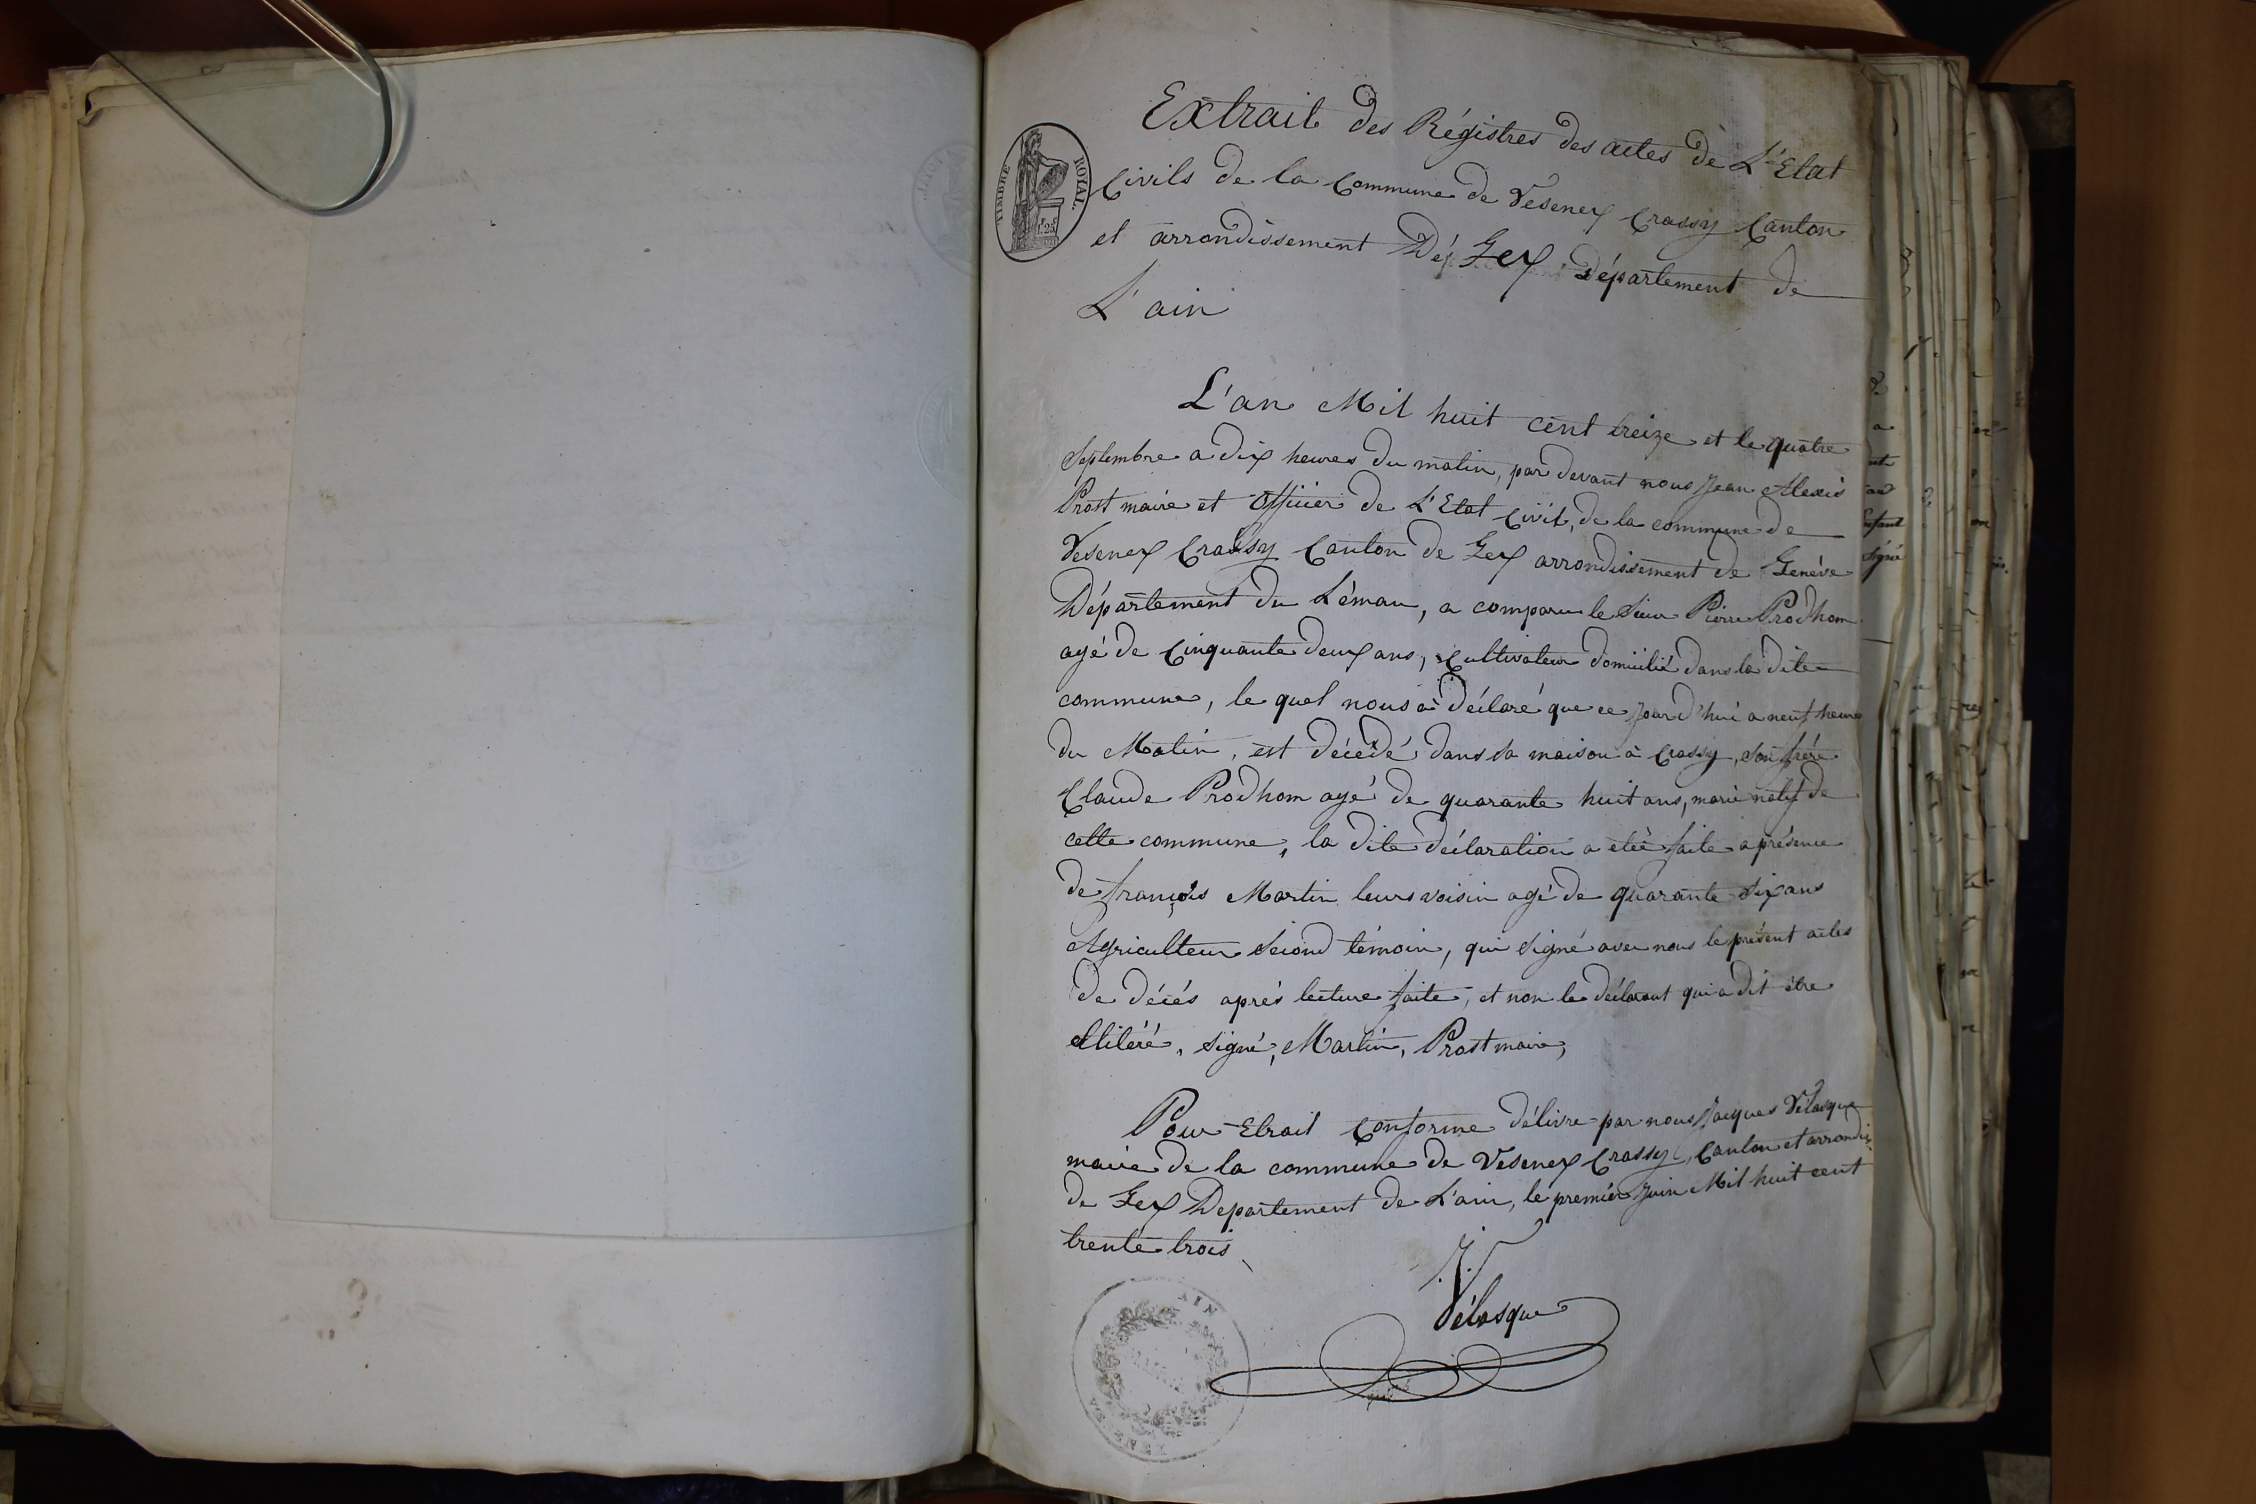 Extrait des Régistres des actes de L'Etat
TIMBRE ROYAL
1.25
Civils de la Commune de Vesenex Crassy Canton
et arrondissement Dep Gex, Département de
L'ain
L'an Mil huit cent treize et le quatre
Septembre a dix heures du matin, par devant nous Jean Alexis
Prost maire et Officier de L'Etat Civil, de la commune de
Vesenex Crassy Canton de Gex arrondissement de Genéve
Département du Léman, a comparu le Sieur Pierre Prodhom
agé de Cinquante deux ans, Cultivateur domicilié dans la dite
commune, le quel nous à déclaré que ce jourd'hui a neuf heures
du Matin, est décédé dans sa maison à Crassy, son frére
Claude Prodhom agé de quarante huit ans, marié natif de
cette commune, la dite déclaration a etée faite a présence
de françois Martin leurs voisin agé de quarante six ans
Agriculteur Second témoin, qui signé avec nous le présent actes
de décés aprés lecture faite, et non le déclarant qui a dit être
Illitéré, signé, Martin, Prost maire,
Pour Etrait Conforme délivré par nous Jacques Vélasque
maire de la commune de Vesenex Crassy, Canton et arrondis
de Gex Departement de L'ain, le premier Juin Mil huit cent
trente trois
J. Vélasque
AIN